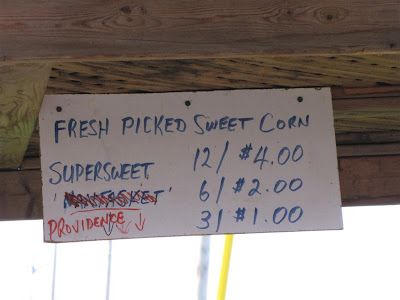 FRESH PICKED SWEET CORN
SUPERSWEET 12/ $4.00
6/ $2.00
PROVIDENCE 3/ $1.00